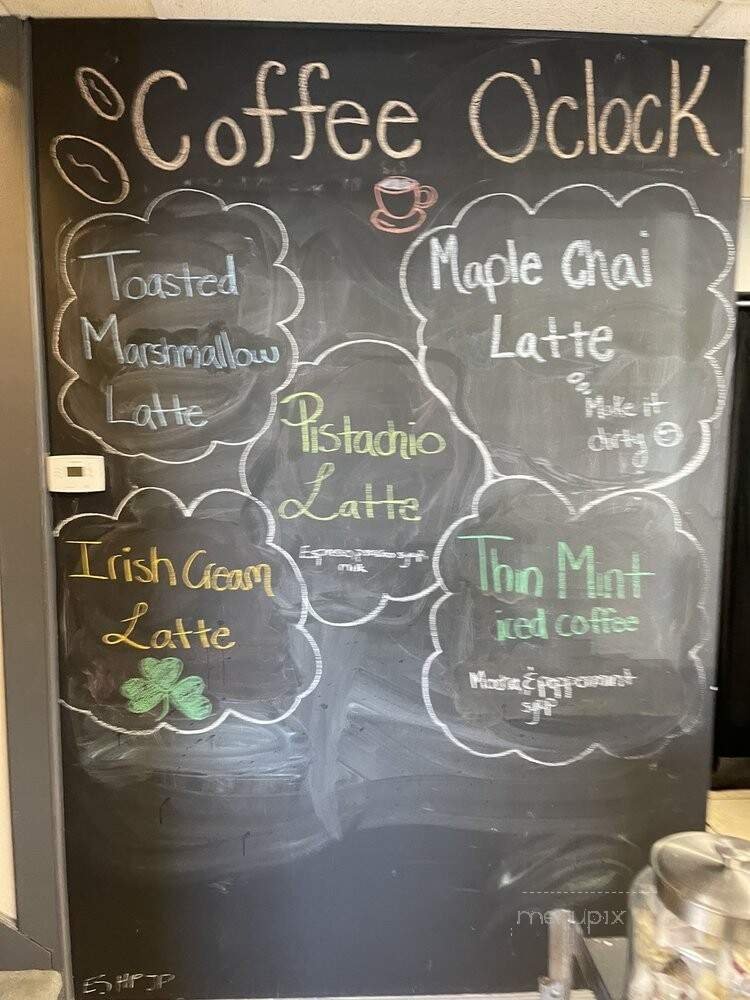 Coffee O'clock
Toasted
Marshmallow
Latte
Maple Chai
Latte
Make it
dirty
Pistachio
Latte
Espresso pistachio syrup
milk
Irish Cream
Latte
Thin Mint
iced coffee
Mocha & peppermint
syrup
menupix
ES HP JP